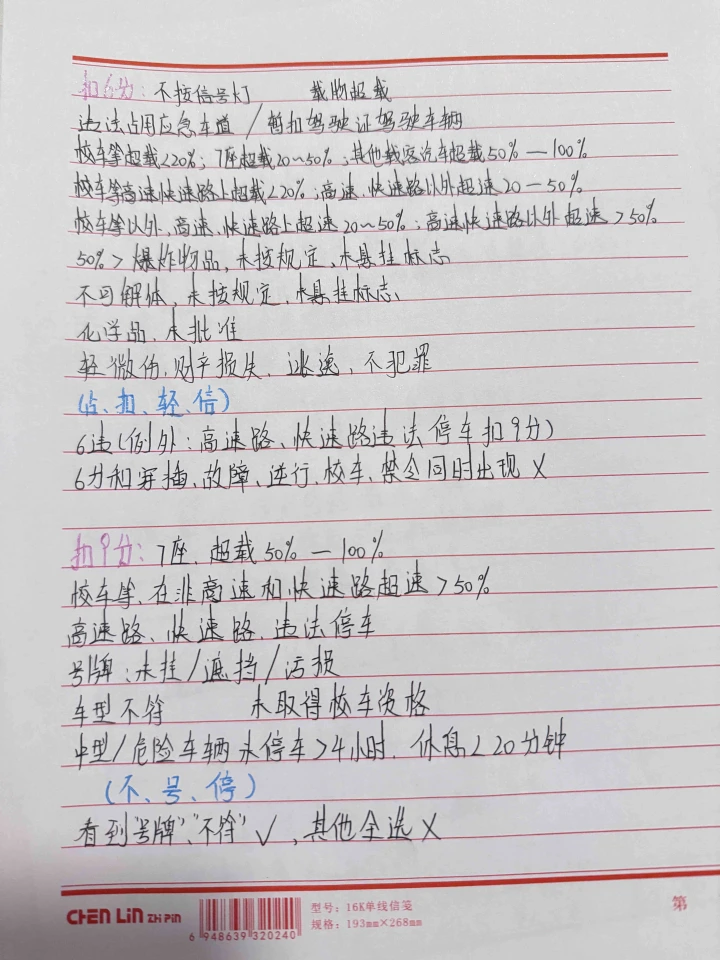 扣6分：不按信号灯 载物超载
违法占用应急车道/暂扣驾驶证驾驶车辆
校车等超载<20%；7座超载20~50%；其他载客汽车超载50%—100%
校车等高速快速路上超载<20%；高速、快速路以外超速20—50%
校车等以外，高速、快速路上超速20~50%；高速快速路以外超速>50%
50%>爆炸物品，未按规定、未悬挂标志
不可解体，未按规定、未悬挂标志、
化学品、未批准
轻微伤、财产损失、逃逸、不犯罪
（占、扣、轻、信）
6违（例外：高速路、快速路违法停车扣9分）
6分和穿插、故障、逆行、校车、禁令同时出现X
扣9分：7座、超载50%—100%
校车等、在非高速和快速路超速>50%
高速路、快速路、违法停车
号牌：未挂/遮挡/污损
车型不符 未取得校车资格
中型/危险车辆未停车>4小时、休息<20分钟
（不、号、停）
看到“号牌”、“不符”√，其他全选X
CHEN LIN ZHI PIN
6 948639 320240
型号：16K单线信笺
规格：193mm×268mm
第